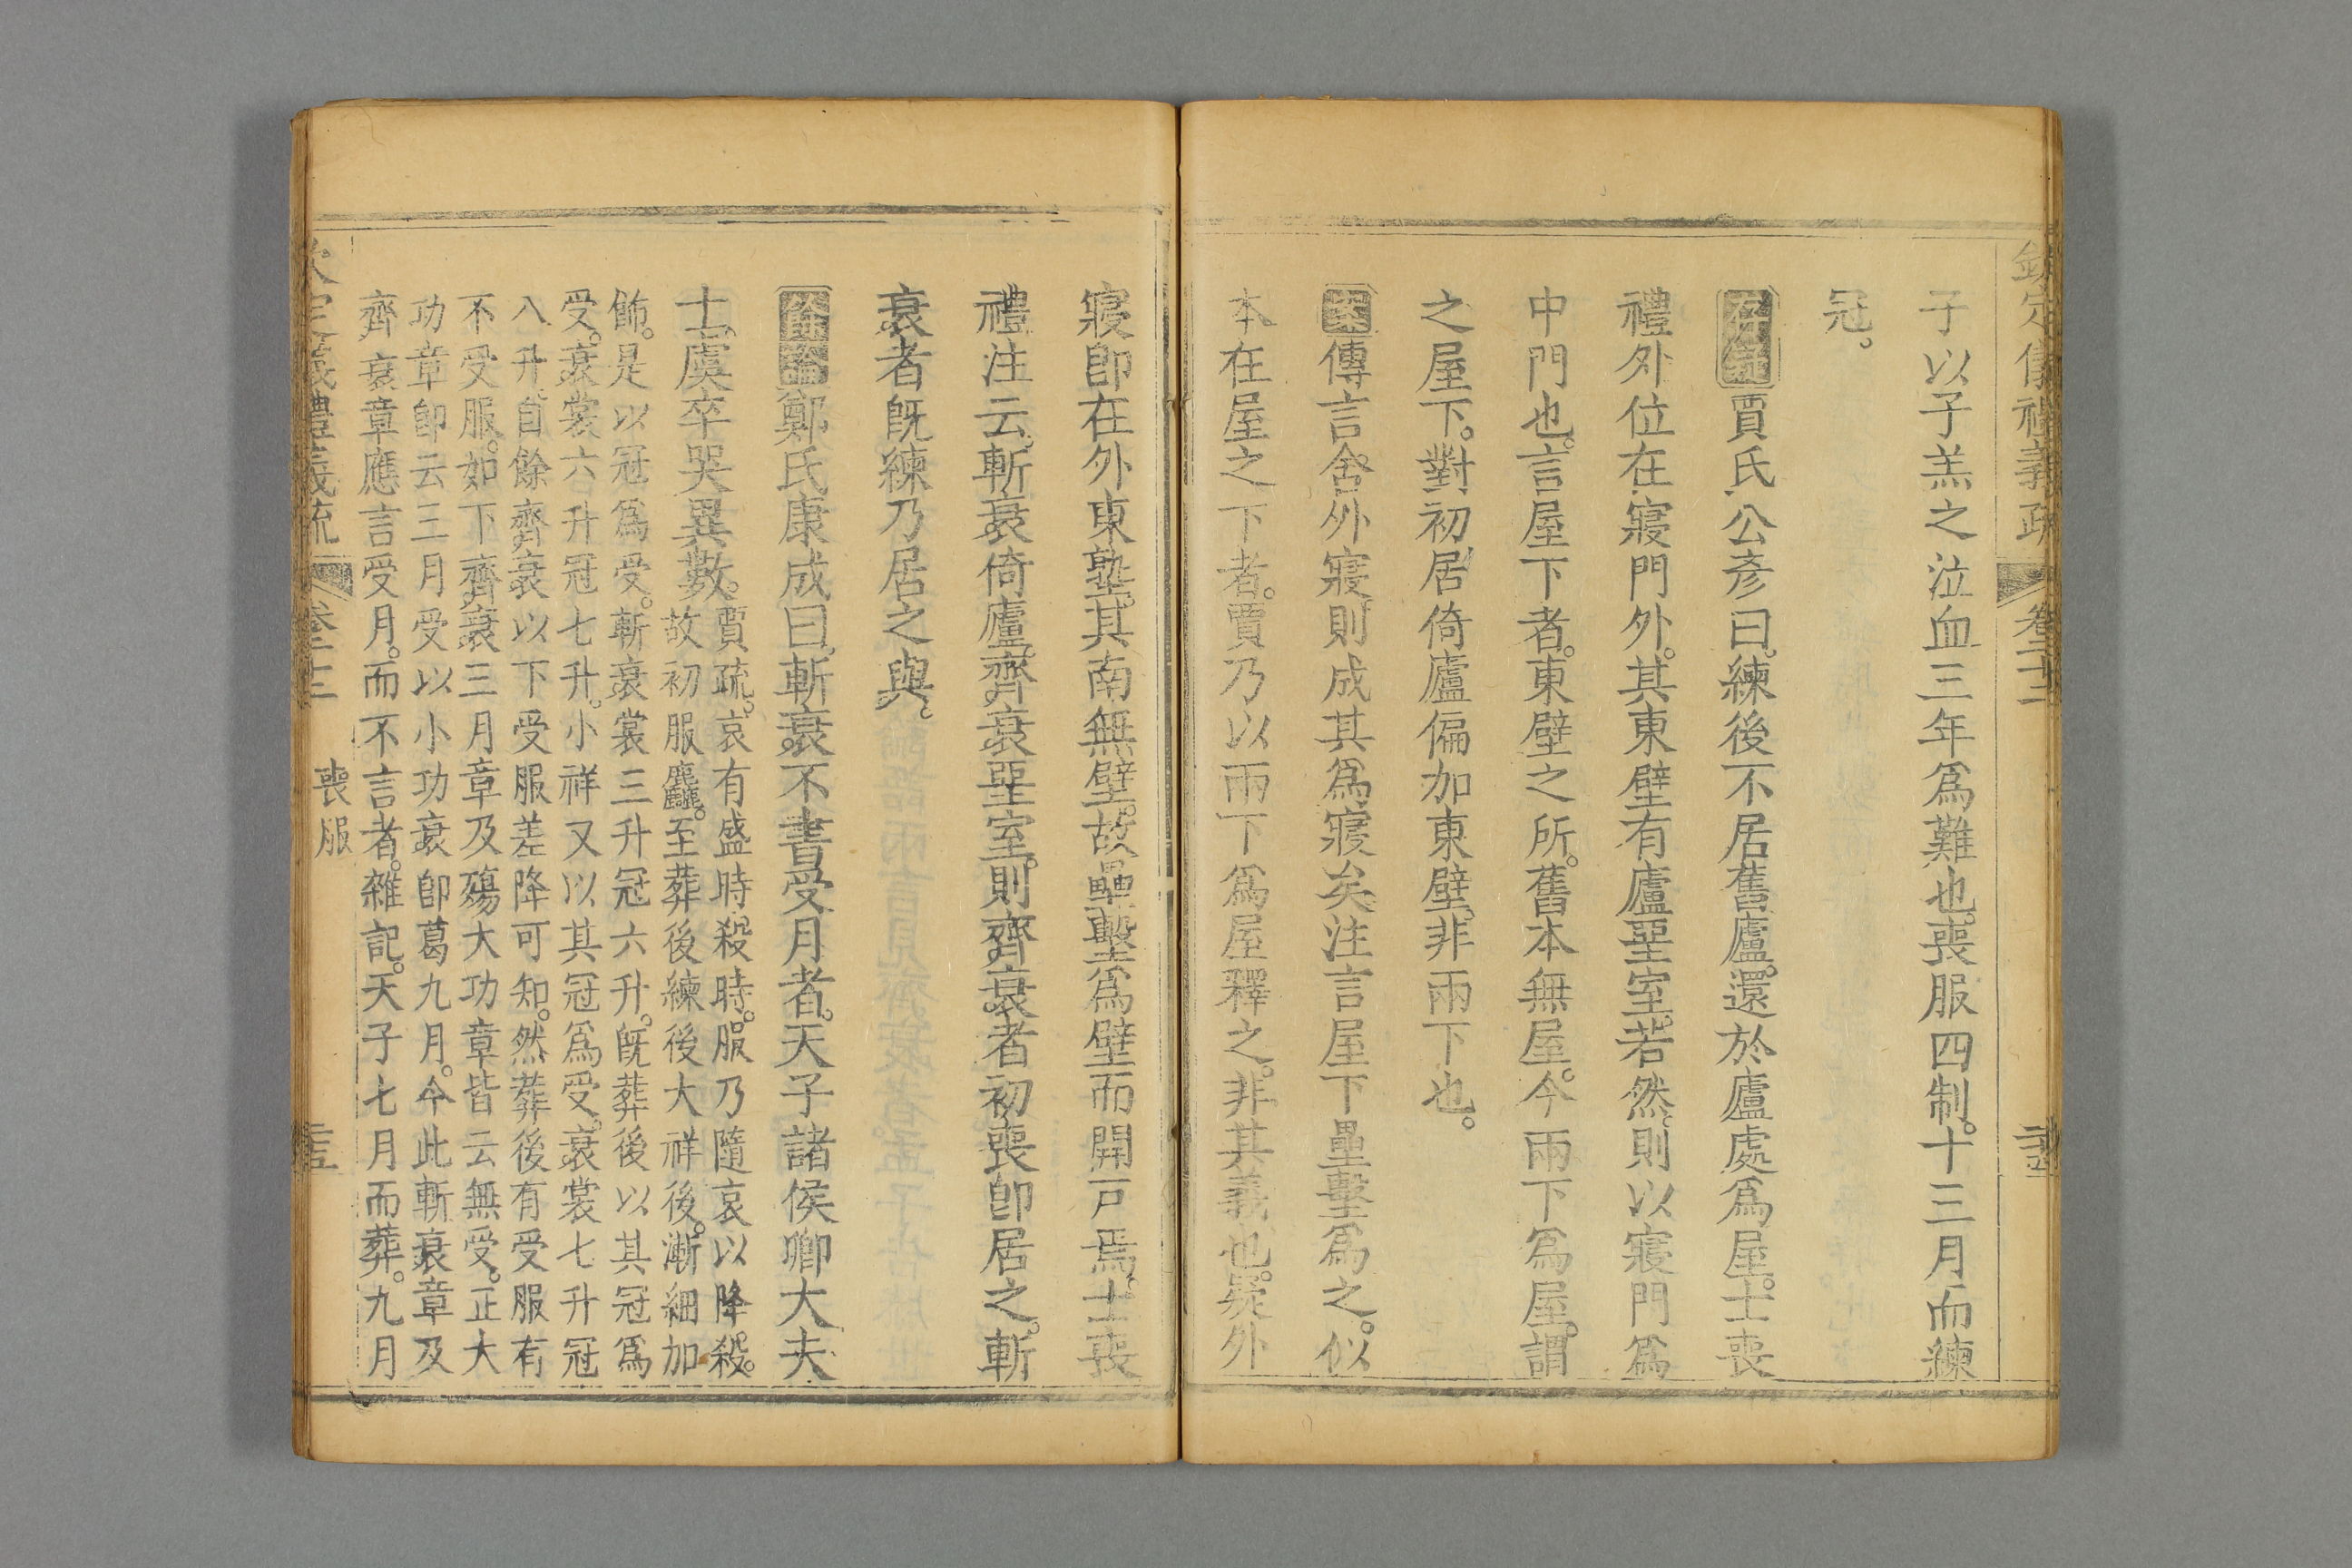 欽定儀禮義疏 卷二十二
子以子羔之泣血三年爲難也。喪服四制。十三月而練
冠。
存疑賈氏公彥曰。練後不居舊廬。還於廬處爲屋。士喪
禮外位在寢門外。其東壁有廬堊室。若然。則以寢門爲
中門也。言屋下者。東壁之所。舊本無屋。今兩下爲屋。謂
之屋下。對初居倚廬偏加東壁。非兩下也。
案傳言舍外寢。則成其爲寢矣。注言屋下壘墼爲之。似
本在屋之下者。賈乃以兩下爲屋釋之。非其義也。疑外
寢卽在外東塾。其南無壁。故壘墼爲壁而開戸焉。士喪
禮注云。斬衰倚廬。齊衰堊室。則齊衰者初喪卽居之。斬
衰者旣練乃居之與。
餘論鄭氏康成曰。斬衰。不書受月者。天子諸侯卿大夫
士。虞卒哭異數。賈疏。哀有盛時殺時。服乃隨哀以降殺。
故初服麤。至葬後練後大祥後。漸細加
飾。是以冠爲受。斬衰裳三升冠六升。旣葬後以其冠爲
受。衰裳六升冠七升。小祥又以其冠爲受。衰裳七升冠
八升。自餘齊衰以下受服差降可知。然葬後有受服有
不受服。如下齊衰三月章及殤大功章皆云無受。正大
功章卽云三月受以小功衰卽葛九月。今此斬衰章及
齊衰章應言受月。而不言者。雜記。天子七月而葬。九月
欽定儀禮義疏 卷二十二 喪服